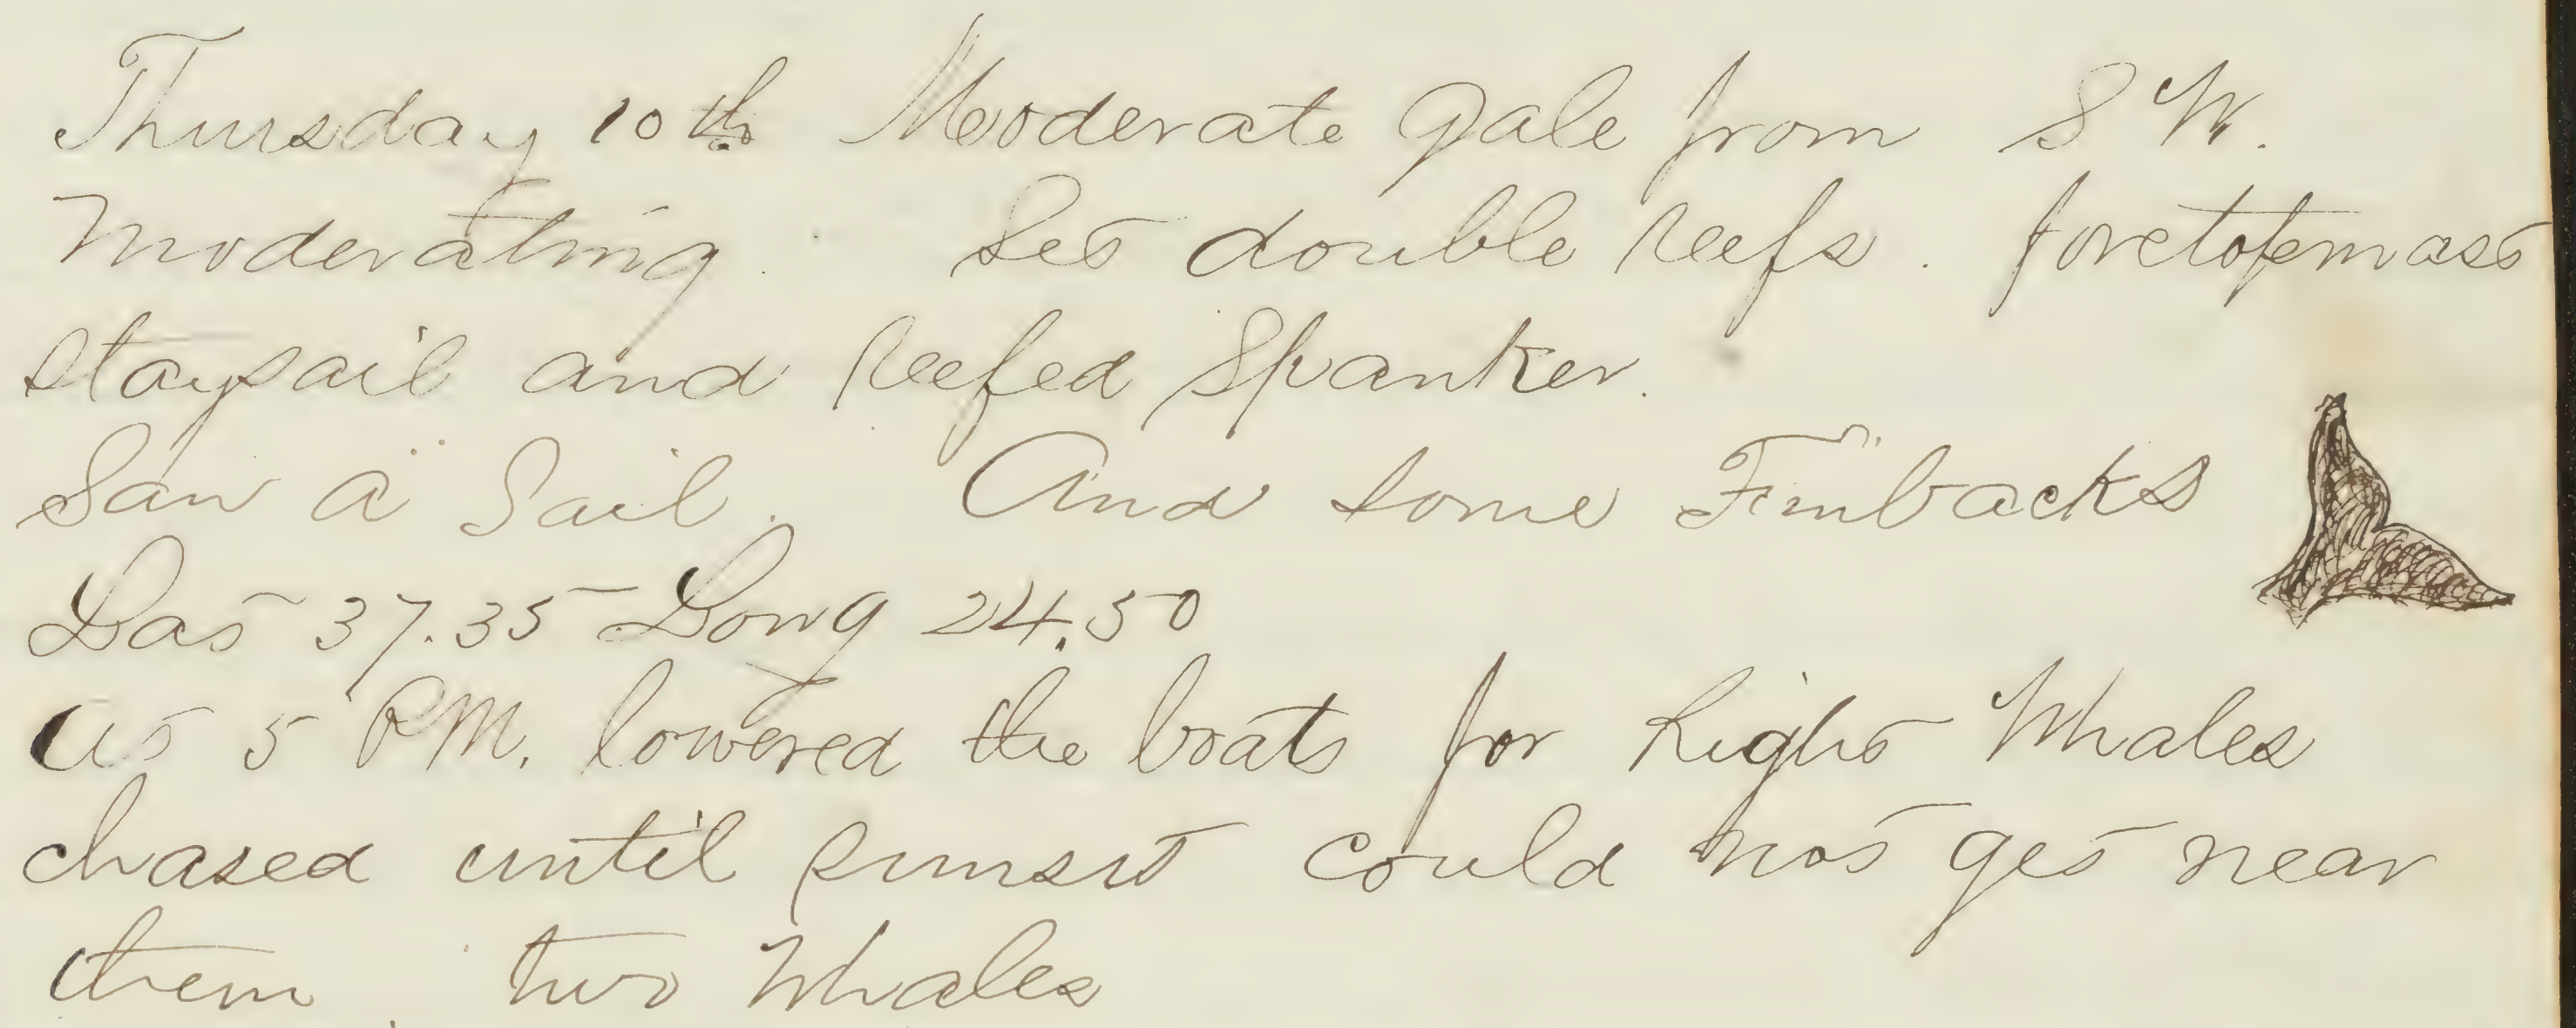 Thursday 10th Moderate gale from S W.
Moderating. Set double reefs. foretopmast
staysail and reefed Spanker.
Saw a Sail. And some Finbacks
Lat 37.35 Long 24.50
At 5 PM. lowered the boats for Right Whales
chased until sunset could not get near
them. two Whales